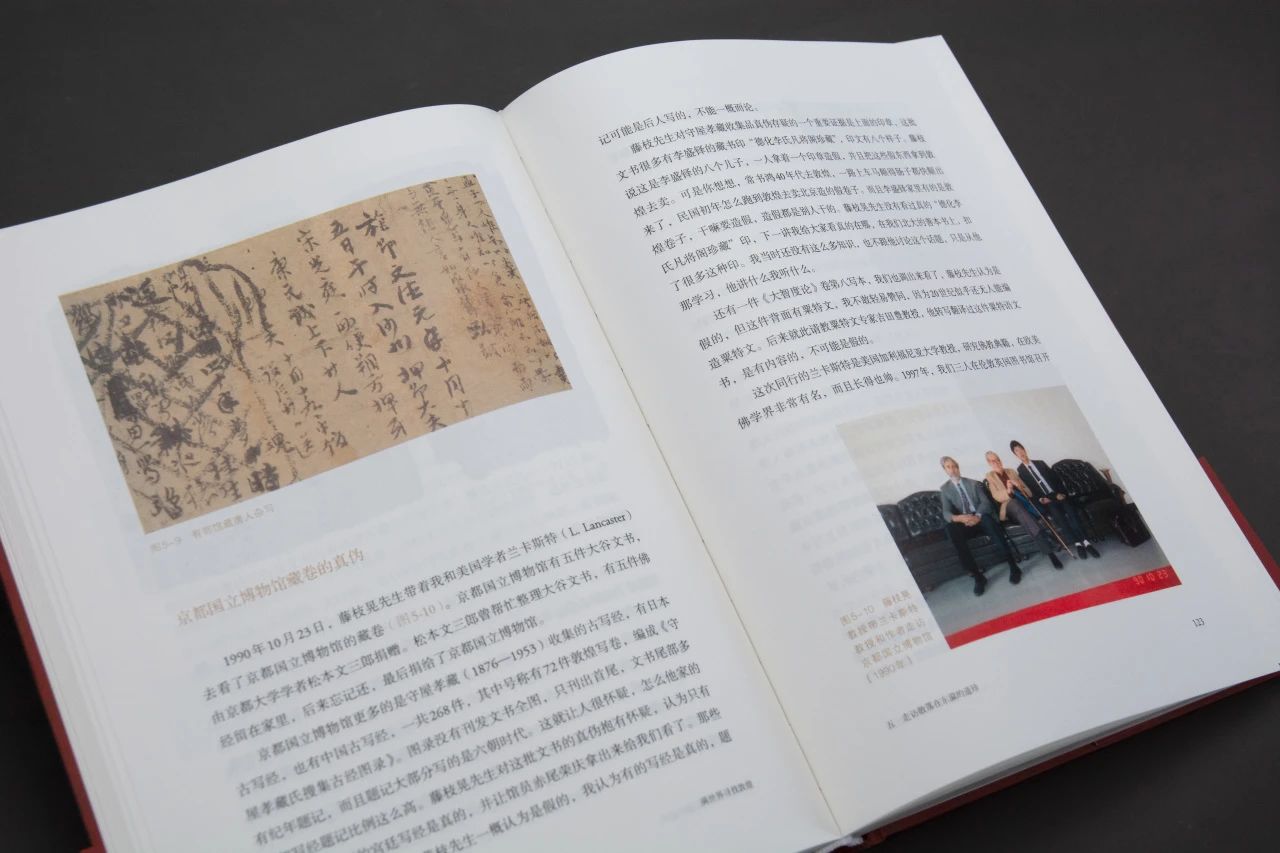 旌节文德元年十月十
五日午时入沙州押节大夫
宋光庭
康元诚上下廿人
图5-9 有邻馆藏唐人杂写
京都国立博物馆藏卷的真伪
1990年10月23日，藤枝晃先生带着我和美国学者兰卡斯特（L. Lancaster）
去看了京都国立博物馆的藏卷（图5-10）。京都国立博物馆有五件大谷文书，
由京都大学学者松本文三郎捐赠。松本文三郎曾帮忙整理大谷文书，有五件佛
经留在家里，后来忘记还，最后捐给了京都国立博物馆。
京都国立博物馆更多的是守屋孝藏（1876—1953）收集的古写经，有日本
古写经，也有中国古写经，一共268件，其中号称有72件敦煌写卷，编成《守
屋孝藏氏搜集古经图录》。图录没有刊发文书全图，只刊出首尾，文书尾部多
有纪年题记，而且题记大部分写的是六朝时代。这就让人很怀疑，怎么他家的
写经题记比例这么高。藤枝晃先生对这批文书的真伪抱有怀疑，认为只有
的宫廷写经是真的，并让馆员赤尾荣庆拿出来给我们看了。那些
藤枝先生一概认为是假的，我认为有的写经是真的，题
满世界寻找敦煌
记可能是后人写的，不能一概而论。
藤枝先生对守屋孝藏收集品真伪存疑的一个重要证据是上面的印章，这批
文书很多有李盛铎的藏书印“德化李氏凡将阁珍藏”，印文有八个样子。藤枝
说这是李盛铎的八个儿子，一人拿着一个印章造假，并且把这些假东西拿到敦
煌去卖。可是你想想，常书鸿40年代去敦煌，一路上车马颠得肠子都快颠出
来了，民国初年怎么跑到敦煌去卖北京造的假卷子，而且李盛铎家里有的是敦
煌卷子，干嘛要造假，造假都是别人干的。藤枝晃先生没有看过真的“德化李
氏凡将阁珍藏”印，下一讲我给大家看真的在哪，在我们北大的善本书上，扣
了很多这种印。我当时还没有这么多知识，也不跟他讨论这个话题，只是从他
那学习，他讲什么我听什么。
还有一件《大智度论》卷第八写本，我们也调出来看了，藤枝先生认为是
假的，但这件背面有粟特文，我不敢轻易赞同，因为20世纪似乎还无人能编
造粟特文。后来就此请教粟特文专家吉田豊教授，他转写翻译过这件粟特语文
书，是有内容的，不可能是假的。
这次同行的兰卡斯特是美国加利福尼亚大学教授，研究佛教典籍，在欧美
佛学界非常有名，而且长得也帅。1997年，我们三人在伦敦英国图书馆召开
90 10 23
图5-10 藤枝晃
教授带兰卡斯特
教授和作者走访
京都国立博物馆
（1990年）
五 走访散落在东瀛的遗珍
123